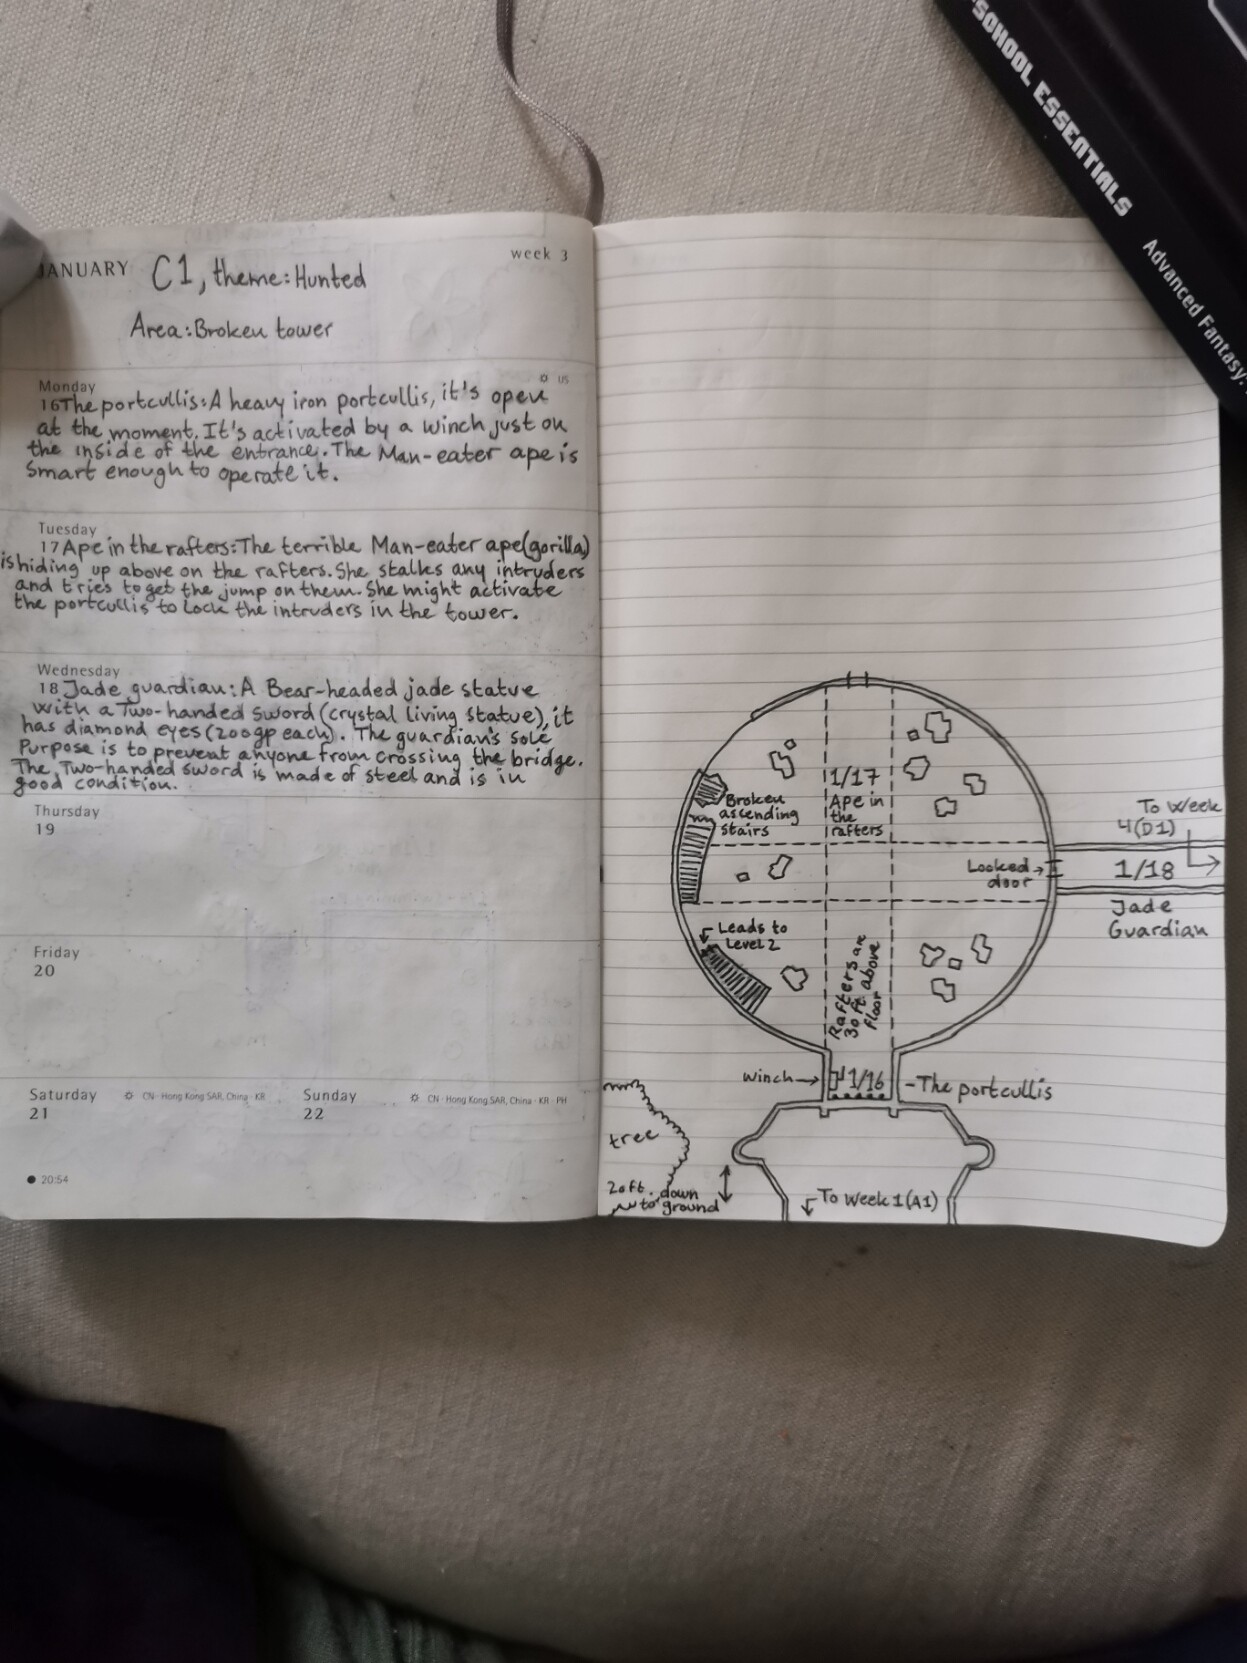 -SCHOOL ESSENTIALS
Advanced Fantasy
JANUARY
week 3
C1, theme: Hunted
Area: Broken tower
Monday
US
16 The portcullis: A heavy iron portcullis, it's open
at the moment. It's activated by a winch just on
the inside of the entrance. The Man-eater ape is
smart enough to operate it.
Tuesday
17 Ape in the rafters: The terrible Man-eater ape (gorilla)
is hiding up above on the rafters. She stalks any intruders
and tries to get the jump on them. She might activate
the portcullis to lock the intruders in the tower.
Wednesday
18 Jade guardian: A Bear-headed jade statue
with a Two-handed sword (crystal living statue), it
has diamond eyes (200gp each). The guardian's sole
Purpose is to prevent anyone from crossing the bridge.
The Two-handed sword is made of steel and is in
good condition.
Thursday
19
Friday
20
Saturday
21
CN - Hong Kong SAR, China · KR
Sunday
22
CN · Hong Kong SAR, China · KR · PH
20:54
1/17
Ape in
the
rafters
Broken
ascending
stairs
To Week
4(D1)
Locked
door
1/18
Jade
Guardian
Leads to
Level 2
Rafters are
30 ft. above
floor
Winch
1/16
-The portcullis
tree
20ft. down
to ground
To Week 1 (A1)